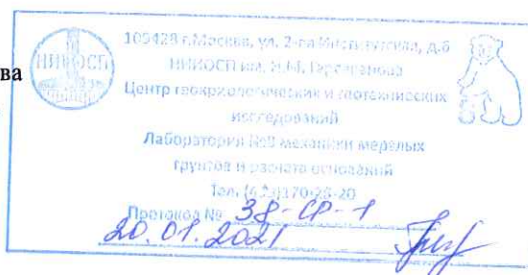 ва
НИИОСП
109428 г.Москва, ул. 2-ая Институтская, д.6
НИИОСП им. Н.М. Герсеванова
Центр геокриологических и геотехнических
исследований
Лаборатория №8 механики мерзлых
грунтов и расчета оснований
Тел. 170-
Протокол № 38-СР-1
20.01.2021